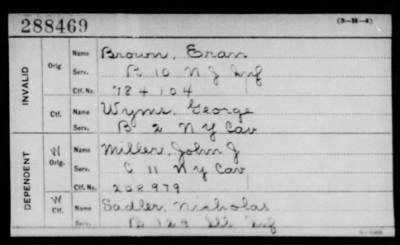 288469
(3-M-4)
INVALID
Orig Name Brown, Eran
Serv. B 10 N J Inf
Ctf. No. 784104
Ctf. Name Wyms, George
Serv. B 2 N Y Cav
DEPENDENT
W Orig. Name Miller, John J
Serv. C 11 N Y Cav
Ctf. No. 208979
W Ctf. Name Sadler, Nicholas
Serv. B 129 Ill Inf